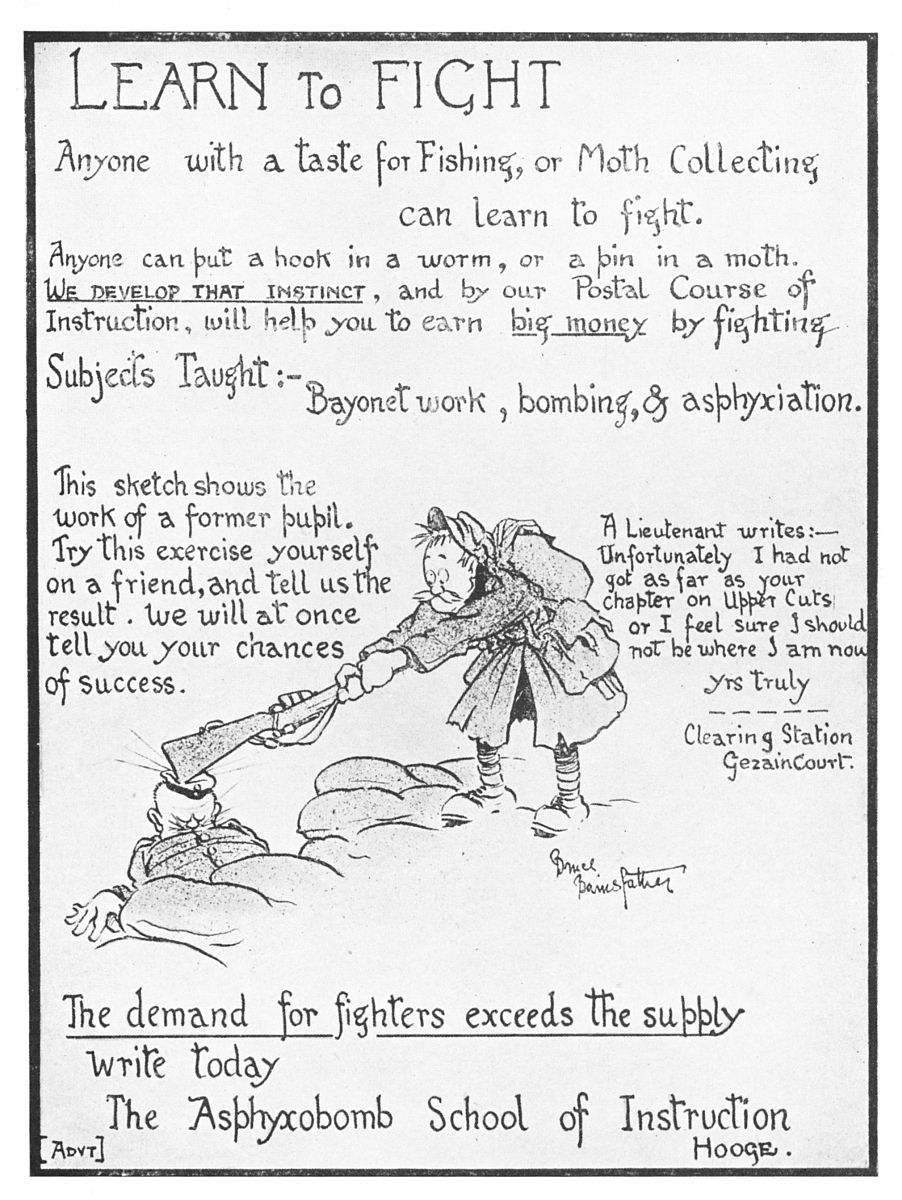 LEARN TO FIGHT
Anyone with a taste for Fishing, or Moth Collecting
can learn to fight.
Anyone can put a hook in a worm, or a pin in a moth.
WE DEVELOP THAT INSTINCT, and by our Postal Course of
Instruction, will help you to earn big money by fighting
Subjects Taught :-
Bayonet work, bombing, & asphyxiation.
This sketch shows the
work of a former pupil.
Try this exercise yourself
on a friend, and tell us the
result. We will at once
tell you your chances
of success.
A Lieutenant writes:—
Unfortunately I had not
got as far as your
chapter on Upper Cuts
or I feel sure I should
not be where I am now
yrs truly
— — — — —
Clearing Station
Gezaincourt.
Bruce
Bairnsfather
The demand for fighters exceeds the supply
write today
The Asphyxobomb School of Instruction
HOOGE.
[ADVT]